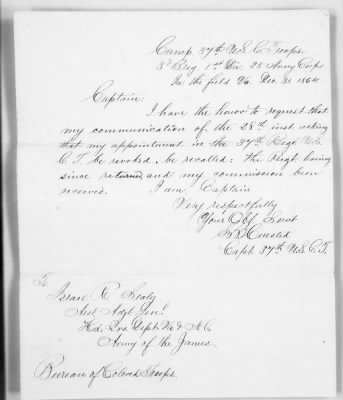 Camp 37th U.S.C. Troops.
3d Brig. 1st Div. 25 Army Corps
In the field Va. Dec. 31. 1864
Captain:
I have the honor to request that
my communication of the 28th inst. asking
that my appointment in the 37th Regt U.S.
C.T. be revoked, be recalled: the Regt. having
since returned and my commission been
received. I am, Captain
Very respectfully
Your Obt. Servt
Capt. 37th U.S.C.T.
To
Israel R. Sealy
Asst Adjt Genl
Hd. Qrs. Dept. Va & N.C.
Army of the James
Bureau of Colored Troops